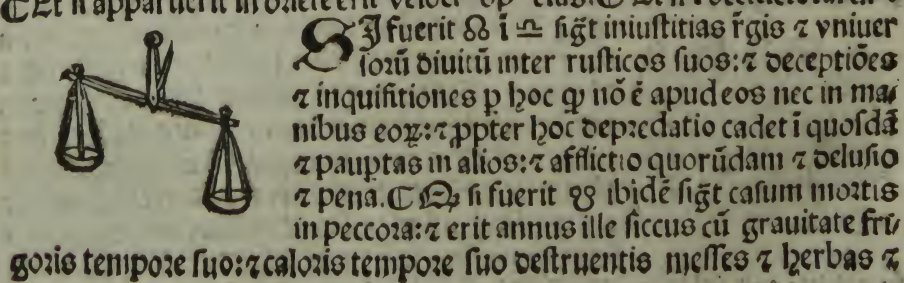 SI fuerit ☊ ī ♎ ſigt̄ iniuſtitias r̄gis ⁊ vniuer
ſoꝝ diuitū inter ruſticos ſuos: ⁊ deceptiōes
⁊ inquiſitiones ꝑ hoc ꝙ nō ē apud eos nec in ma⸗
nibus eoꝝ: ⁊ ꝓpter hoc depꝛedatio cadet ī quoſdā
⁊ pauꝑtas in alios: ⁊ afflictio quorūdam ⁊ deluſio
⁊ pena. ☾ ſi fuerit ☋ ibidē ſigt̄ caſum moꝛtis
in peccoꝛa: ⁊ erit annus ille ſiccus cū grauitate fri⸗
goꝛis tempoꝛe ſuo: ⁊ caloꝛis tempoꝛe ſuo deſtruentis meſſes ⁊ herbas ⁊